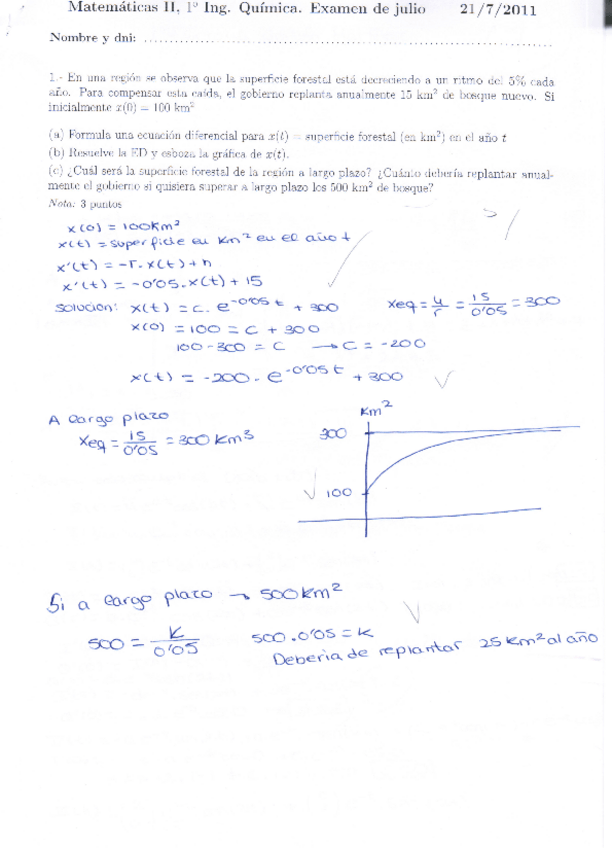 Matemáticas II, 1º Ing. Química. Examen de julio 21/7/2011
Nombre y dni:
1.- En una región se observa que la superficie forestal está decreciendo a un ritmo del 5% cada
año. Para compensar esta caída, el gobierno replanta anualmente 15 km² de bosque nuevo. Si
inicialmente x(0) = 100 km²
(a) Formula una ecuación diferencial para x(t) = superficie forestal (en km²) en el año t
(b) Resuelve la ED y esboza la gráfica de x(t).
(c) ¿Cuál será la superficie forestal de la región a largo plazo? ¿Cuánto debería replantar anual-
mente el gobierno si quisiera superar a largo plazo los 500 km² de bosque?
Nota: 3 puntos
x(0) = 100km²
x(t) = superficie en km² en el año t
x'(t) = -r. x(t) + n
x'(t) = -0'05. x(t) + 15
Solucion: x(t) = c. e^-0'05t + 300 xeq = 4/r = 15/0'05 = 300
x(0) = 100 = C + 300
100 - 300 = C → C = -200
x(t) = -200. e^-0'05t + 300
A largo plazo
Xeq = 15/0'05 = 300 km³
km²
300
100
Si a largo plazo → 500 km²
500 = K/0'05 500.0'05 = K
Deberia de replantar 25 km² al año